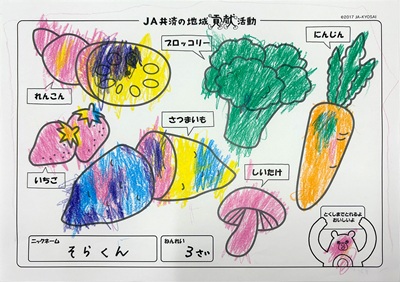 JA共済の地域貢献活動
©2017 JA-KYOSAI
ブロッコリー
にんじん
れんこん
さつまいも
いちご
しいたけ
とくしまでとれるよ
おいしいよ
ニックネーム
そらくん
ねんれい
3さい